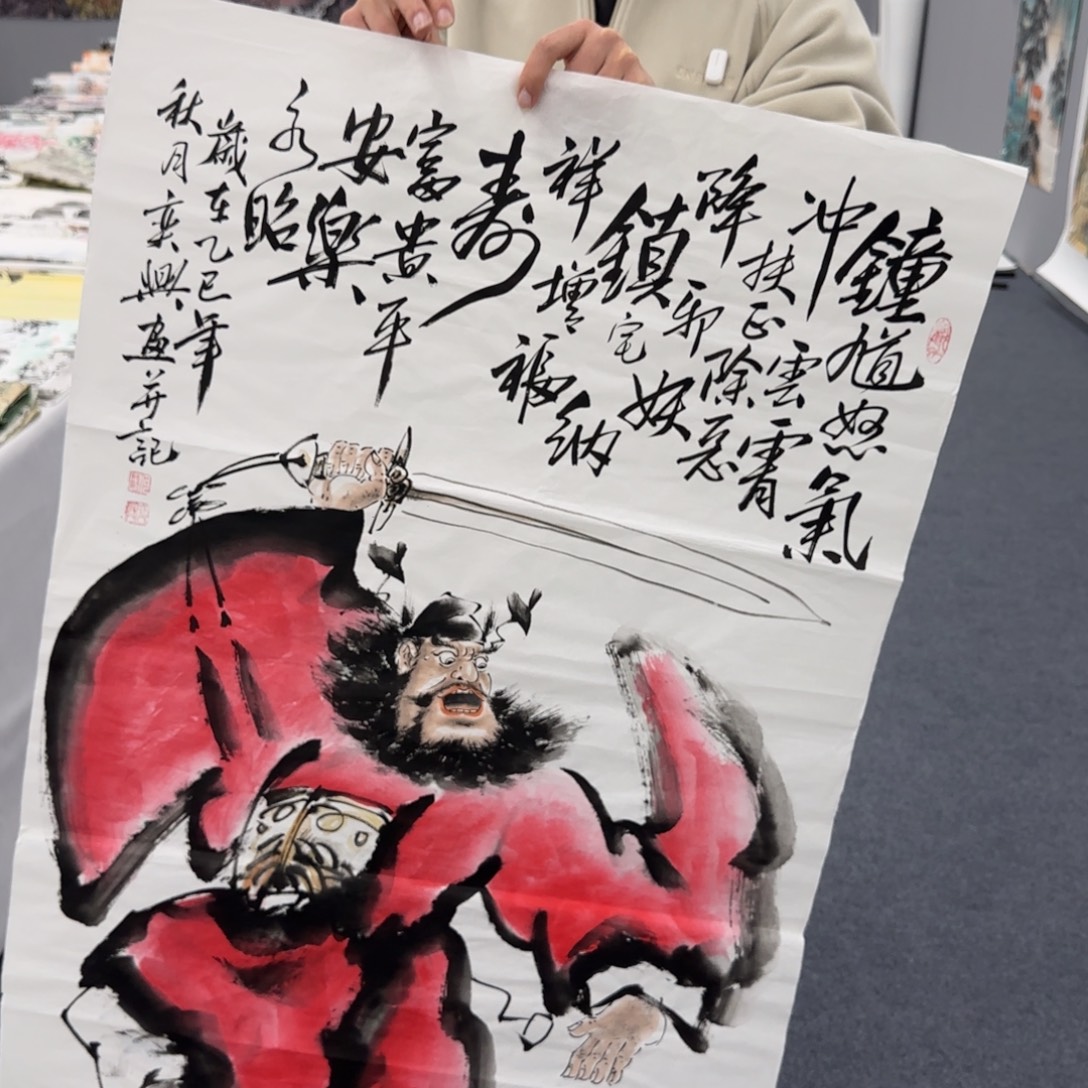 鐘馗怒氣
冲雲霄
扶正除惡
降邪妖
鎮宅納
祥增福
寿
富貴平
安樂
永昭
歲在乙巳年
秋月奕興畫并記